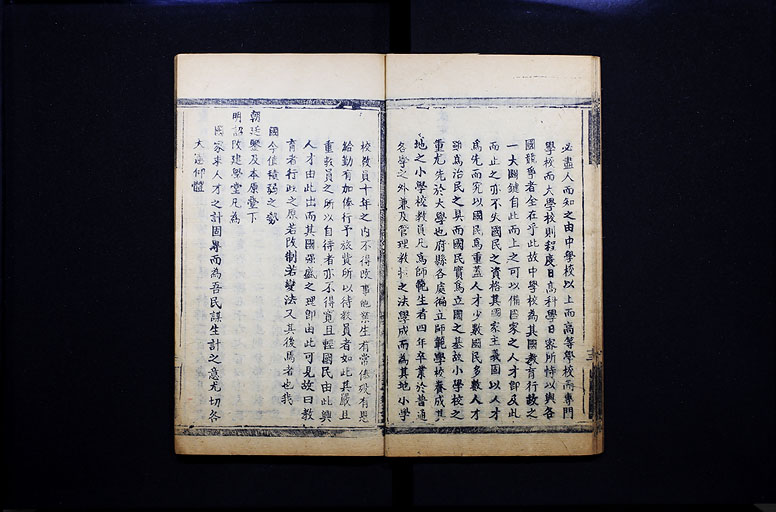 必盡人而知之由中學校以上而高等學校而專門
學校而大學校則程度日高科學日密所恃以與各
國競爭者全在乎此故中學校為其國教育行政之
一大關鍵自此而上之可以備國家之人才即及此
而止之亦不失國民之資格其國家主義固以人才
為先而究以國民為重蓋人才少數國民多數人才
雖為治民之具而國民實為立國之基故小學校之
重尤先於大學也府縣各處徧立師範學校養成其
地之小學校教員凡為師範生者四年卒業於普通
各學之外兼及管理教授之法學成而為其地小學
校教員十年之內不得改事他業生有常俸歿有恩
給勤有加俸行予旅費所以待教員者如此其嚴且
重教員之所以自待者亦不得寬且輕國民由此興
人才由此出而其國強盛之理即由此可見故曰教
育者行政之原若改制若變法又其後焉者也我
國今值積弱之勢
朝廷鑒及本原疊下
明詔改建學堂凡為
國家求人才之計固專而為吾民謀生計之意尤切各
大憲仰體